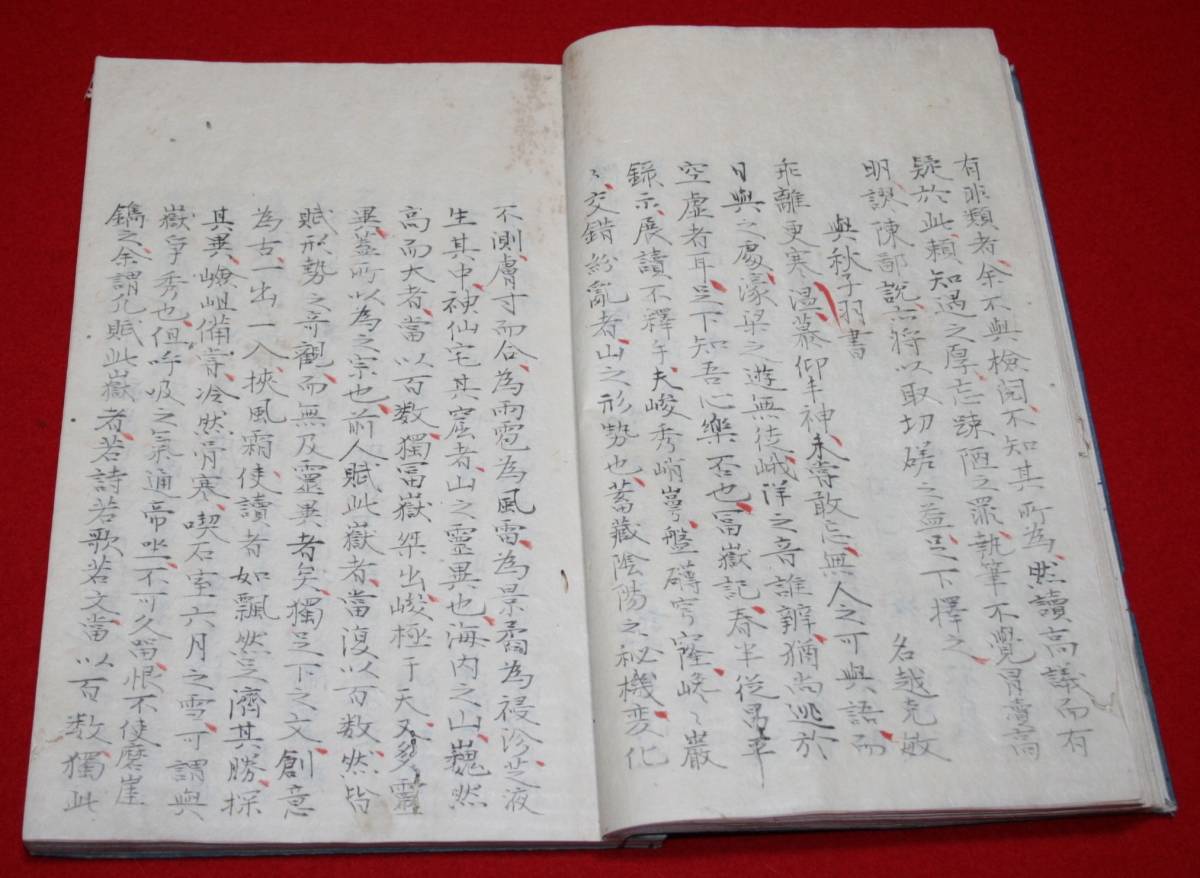 有非類者余不與檢閱不知其所為然讀高議而有
疑於此賴知遇之厚忘疎陋之罪執筆不覺冐瀆高
明謬陳鄙說亦將以取切磋之益足下擇之
名越克敏
與秋子羽書
乖離更寒溫慕仰丰神未嘗敢忘無人之可與語而
日與之處濠梁之遊無徒峨洋之音誰辨猶尚逃於
空虛者耳足下知吾心樂否也冨嶽記春半從昂平
錄示展讀不釋手夫峻秀峭崿盤礴穹窿峻〻巖
〻交錯紛亂者山之形勢也蓄藏陰陽之秘機変化
不測膚寸而合為雨雹為風雷為景為祲沴芝液
生其中神仙宅其窟者山之靈異也海内之山巍然
高而大者當以百数獨冨嶽桀出峻極于天又多靈
異蓋所以為之宗也前人賦此嶽者當復以百数然皆
賦形勢之奇觀而無及靈異者矣獨足下之文創意
為古一出一入挾風霜使讀者如飄然三濟其勝探
其異嶮岨備嘗冷然骨寒喫石室六月之雪可謂與
嶽爭秀也但呼吸之氣通帝坐不可久留恨不使磨崖
鐫之余謂凢賦此嶽者若詩若歌若文當以百数獨此